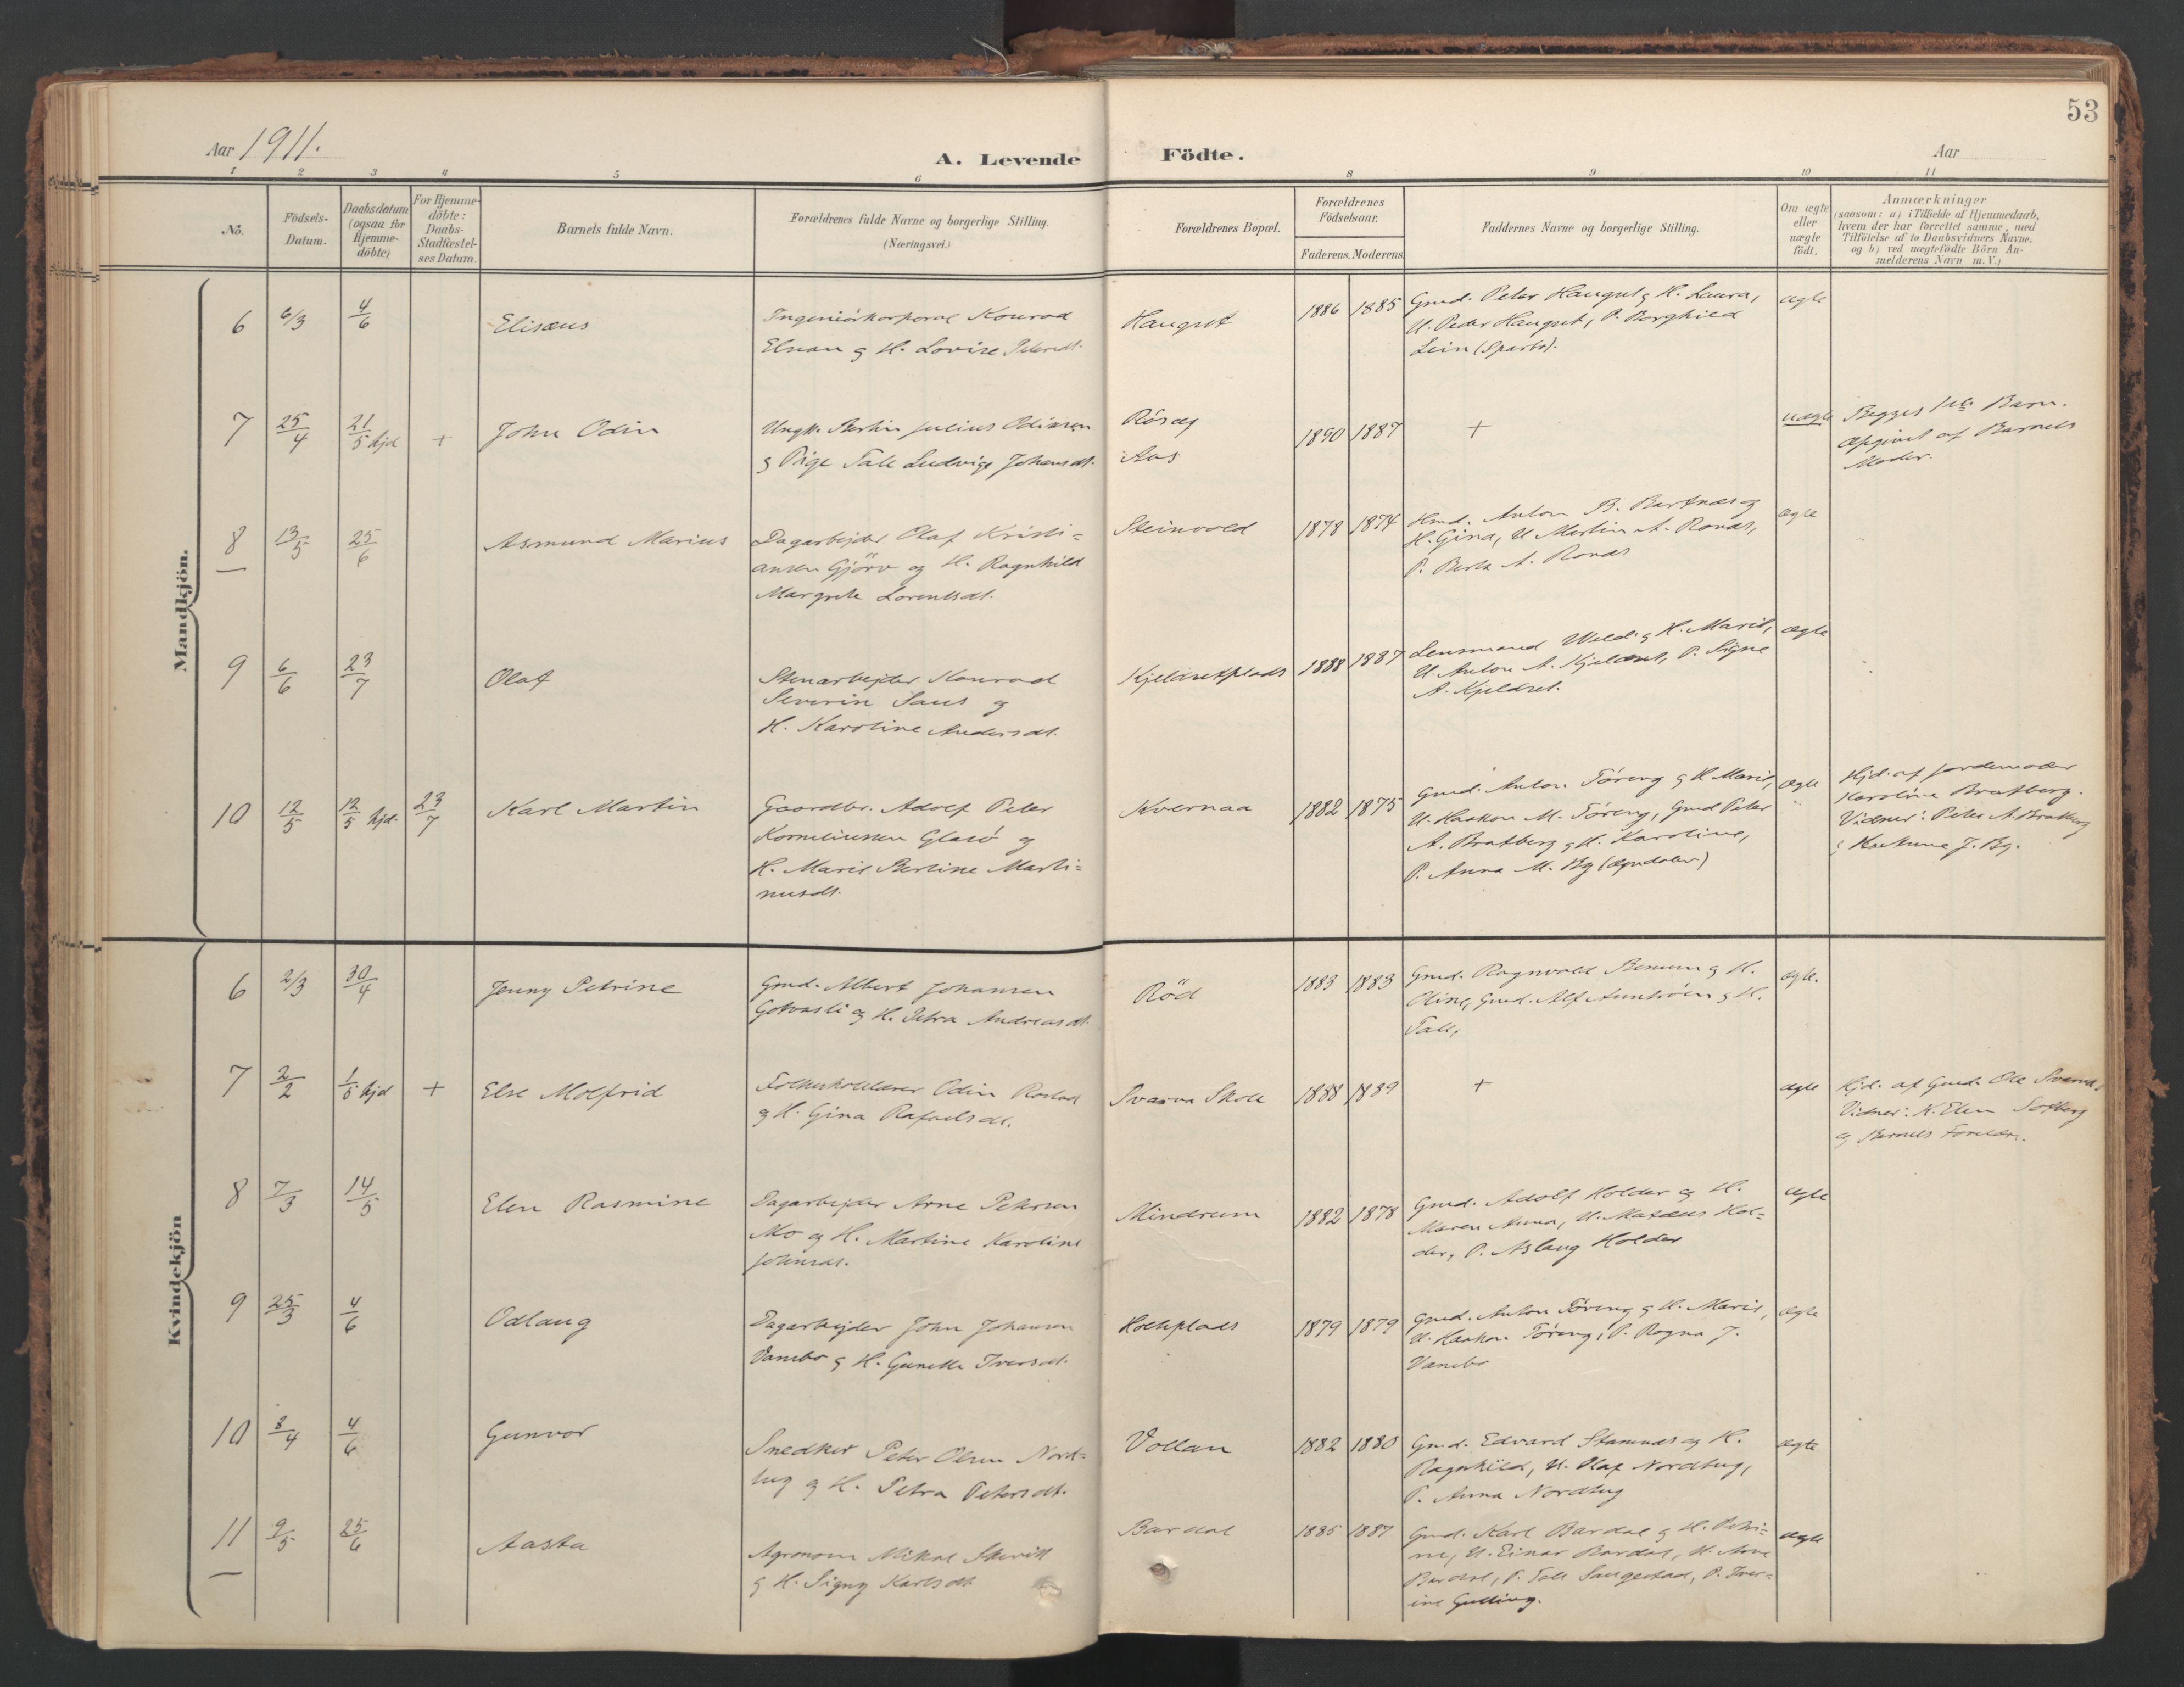 53
Aar 1911.
A. Levende Födte.
Aar
1 2 3 4 5 6 8 9 10 11
No.
Födsels-
Datum.
Daabsdatum
(ogsaa for
Hjemme-
döbte)
For Hjemme-
döbte:
Daabs-
Stadfæstel-
ses Datum.
Barnets fulde Navn.
Forældrenes fulde Navne og borgerlige Stilling.
(Næringsvei.)
Forældrenes Bopæl.
Forældrenes
Födselsaar.
Faderens. Moderens
Faddernes Navne og borgerlige Stilling.
Om ægte
eller
uægte
födt.
Anmærkninger
(saasom: a) i Tilfælde af Hjemmedaab,
hvem der har forrettet samme, med
Tilföielse af to Daabsvidners Navne.
og b) ved uægtefödte Börn An-
melderens Navn m. V.)
Mandkjön.
6 6/3 4/6 Elisæus
Ingeniörkorporal Konrad
Elnan g H. Lovise
Haugset 1886 1885
Gmd. Peter Haugset g H. Laura,
U. Peder Haugset, P. Borghild
Lein (Sparbo).
ægte
7 25/4 21/5 hjd + John Odin
Ungk. Bertin Julius Odinsen
g Pige Tale Ludvige Johansdt.
Aas
1890 1887 +
uægte
Begges 1ste Barn.
Opgivet af Barnets
Moder.
8 13/5 25/6 Asmund Marius
Dagarbejder Olaf Kristi=
ansen Gjörv og H. Ragnhild
Margrete Lorentsdt.
Steinvold 1878 1874
Anton B. Bartnæs og
H. Gina, U. Martin A. Ronæs,
P. A. Ronæs
ægte
9 6/6 23/7 Olaf
Stenarbejder Konrad
Severin Saus og
H. Karoline Andersdt.
Kjeldsetplads 1888 1887
Lensmand g H. Marie,
U. Anton A. Kjeldset, P. Signe
A. Kjeldset.
ægte
10 12/5 12/5 hjd. 23/7 Karl Martin
Gaardbr. Adolf Peter
Korneliussen Glasö og
H. Marie Berline Marti=
nusdt.
Kvernaa 1882 1875
Gmd. Anton Töring g H. Marie,
U. Haakon M. Töring, Gmd Peter
A. Bratberg g H. Karoline,
P. Anna M. By (Ogndalen)
ægte
Hjd. af Jordemoder
Karoline Bratberg.
Vidner: Peter A. Bratberg
g J. By.
Kvindekjön
6 2/3 30/4 Jenny Petrine
Gmd. Albert Johansen
Gotvasli og H. Petra Andreasdt.
Röd 1883 1883
Gmd. Ragnvald Benum g H.
Oline, Gmd. Alf g H.
Tale,
ægte.
7 2/2 1/5 hjd + Else Molfrid
Folkeskolelærer Odin Rostad
g H. Gina Rafaelsdt.
Svarva Skole 1888 1889 +
ægte
Hjd. af Gmd. Ole Svarva
Vidner: K. Elen Solberg
og Barnets Forældre.
8 7/3 14/5 Elen Rasmine
Dagarbejder Arne Petersen
Mo og H. Martine Karoline
Johnsdt.
Mindrum 1882 1878
Gmd. Adolf Holder og H.
Maren Anna, U. Matæus Hol=
der, P. Aslaug Holder
ægte
9 25/3 4/6 Odlaug
Dagarbejder John Johansen
Vansbo g H. Gunelle Iversdt.
1879 1879
Gmd. Anton Töring g H. Marie,
U. Haakon Töring, P. Ragna J.
Vansbo
ægte
10 3/4 4/6 Gunvor
Snedker Peter Olsen Nord=
hug g H. Petra Petersdt.
Vollan 1882 1880
Gmd. Edvard Stamnes og H.
Ragnhild, U. Olaf Nordhug,
P. Anna Nordhug
ægte
11 9/5 25/6 Aasta
Agronom Mikal Skevik
g H. Signy Karlsdt.
Bardal 1885 1887
Gmd. Karl Bardal g H. Petri=
ne, U. Einar Bardal, U. Arne
Bardal, P. Tale Saugestad, P. Iver=
ine
ægte